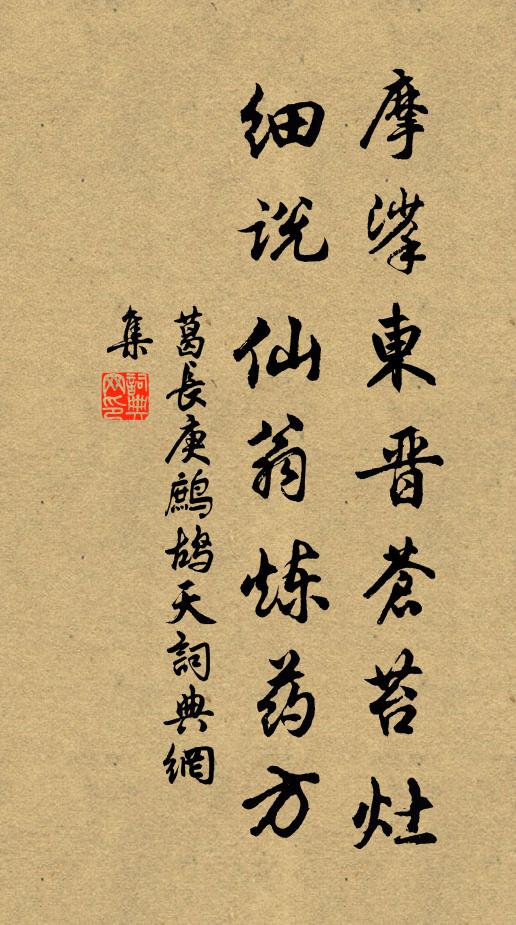 摩挲東晋蒼苔灶
细説仙翁炼药方
葛長庚鷓鴣天詞典網
集
詞典網印